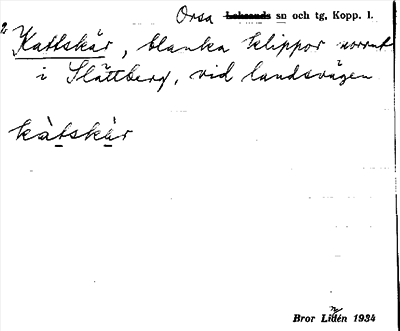 Orsa Leksands sn och tg, Kopp. l.
2 Kattskär, blanka klippor norrut
i Slättberg, vid landsvägen
kàtskär
Bror Lidén 1934